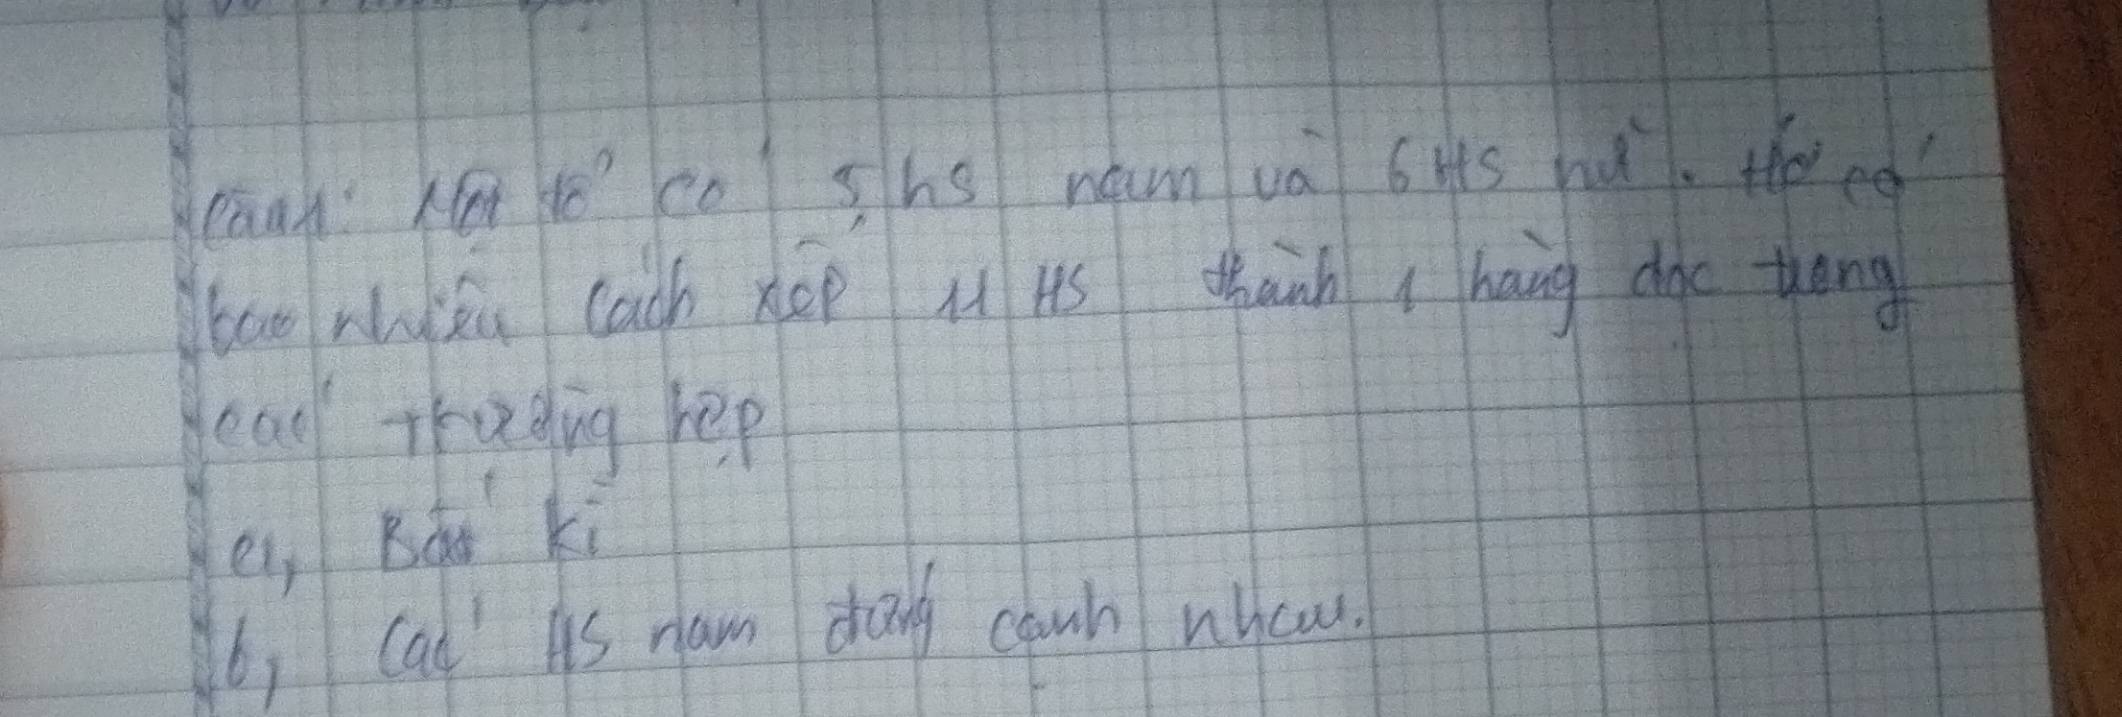 Một tổ có 5 hs nam và 6 HS nữ. Hỏi có
bao nhiêu cách xếp 11 HS thành 1 hàng dọc trong
các trường hợp
a, Bất kì
b, Các HS nam đứng cạnh nhau.